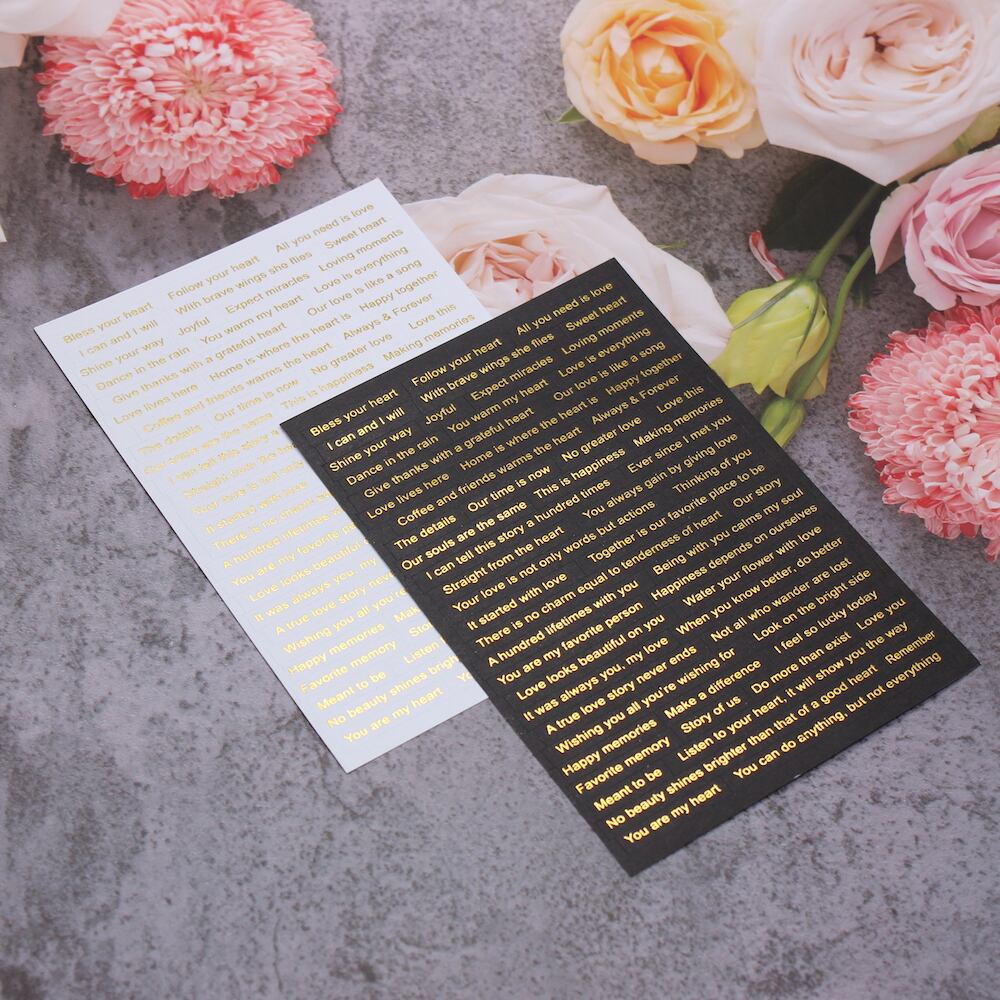 Bless your heart Follow your heart All you need is love
I can and I will With brave wings she flies Sweet heart
Shine your way Joyful Expect miracles Loving moments
Dance in the rain You warm my heart Love is everything
Give thanks with a grateful heart Our love is like a song
Love lives here Home is where the heart is Happy together
Coffee and friends warms the heart Always & Forever
The details Our time is now No greater love Love this
Our souls are the same This is happiness Making memories
I can tell this story a
Straight from the
Your love is not only
It started with love
There is no charm
A hundred lifetimes
You are my favorite
Love looks beautiful
It was always you, my
A true love story never
Wishing you all you're
Happy memories
Favorite memory
Meant to be Listen
No beauty shines bright
You are my heart
Bless your heart Follow your heart All you need is love
I can and I will With brave wings she flies Sweet heart
Shine your way Joyful Expect miracles Loving moments
Dance in the rain You warm my heart Love is everything
Give thanks with a grateful heart Our love is like a song
Love lives here Home is where the heart is Happy together
Coffee and friends warms the heart Always & Forever
The details Our time is now No greater love Love this
Our souls are the same This is happiness Making memories
I can tell this story a hundred times Ever since I met you
Straight from the heart You always gain by giving love
Your love is not only words but actions Thinking of you
It started with love Together is our favorite place to be
There is no charm equal to tenderness of heart Our story
A hundred lifetimes with you Being with you calms my soul
You are my favorite person Happiness depends on ourselves
Love looks beautiful on you Water your flower with love
It was always you, my love When you know better, do better
A true love story never ends Not all who wander are lost
Wishing you all you're wishing for Look on the bright side
Happy memories Make a difference I feel so lucky today
Favorite memory Story of us Do more than exist Love you
Meant to be Listen to your heart, it will show you the way
No beauty shines brighter than that of a good heart Remember
You are my heart You can do anything, but not everything